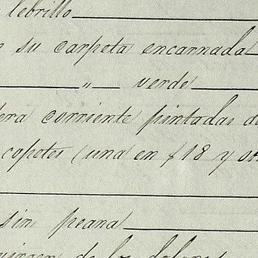 lebrillo
su carpeta encarnada
" verde
era corriente pintadas d
copetes (una en f 18 y
sin peana
virgen de los dolores